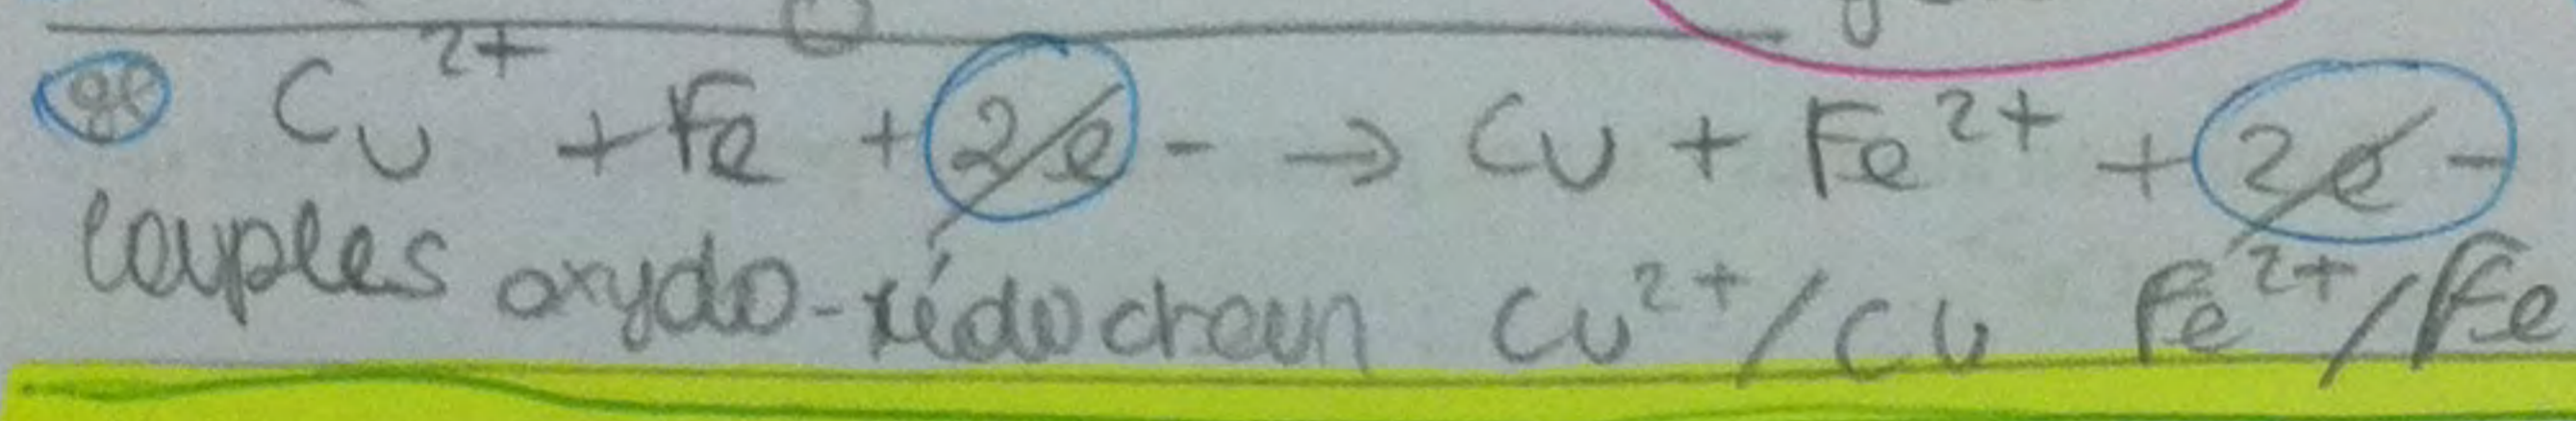 Cu²⁺ + Fe + 2e- → Cu + Fe²⁺ + 2e-
couples oxydo-réduction Cu²⁺/Cu Fe²⁺/Fe